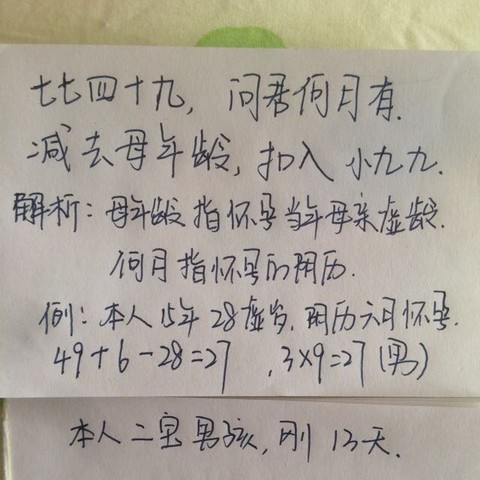 七七四十九，问君何月有.
减去母年龄，扣入小九九.
解析：母年龄指怀孕当年母亲虚龄.
何月指怀孕的阴历.
例：本人15年28虚岁.阴历六月怀孕.
49+6-28=27 ,3×9=27(男)
本人二宝男孩,刚13天.